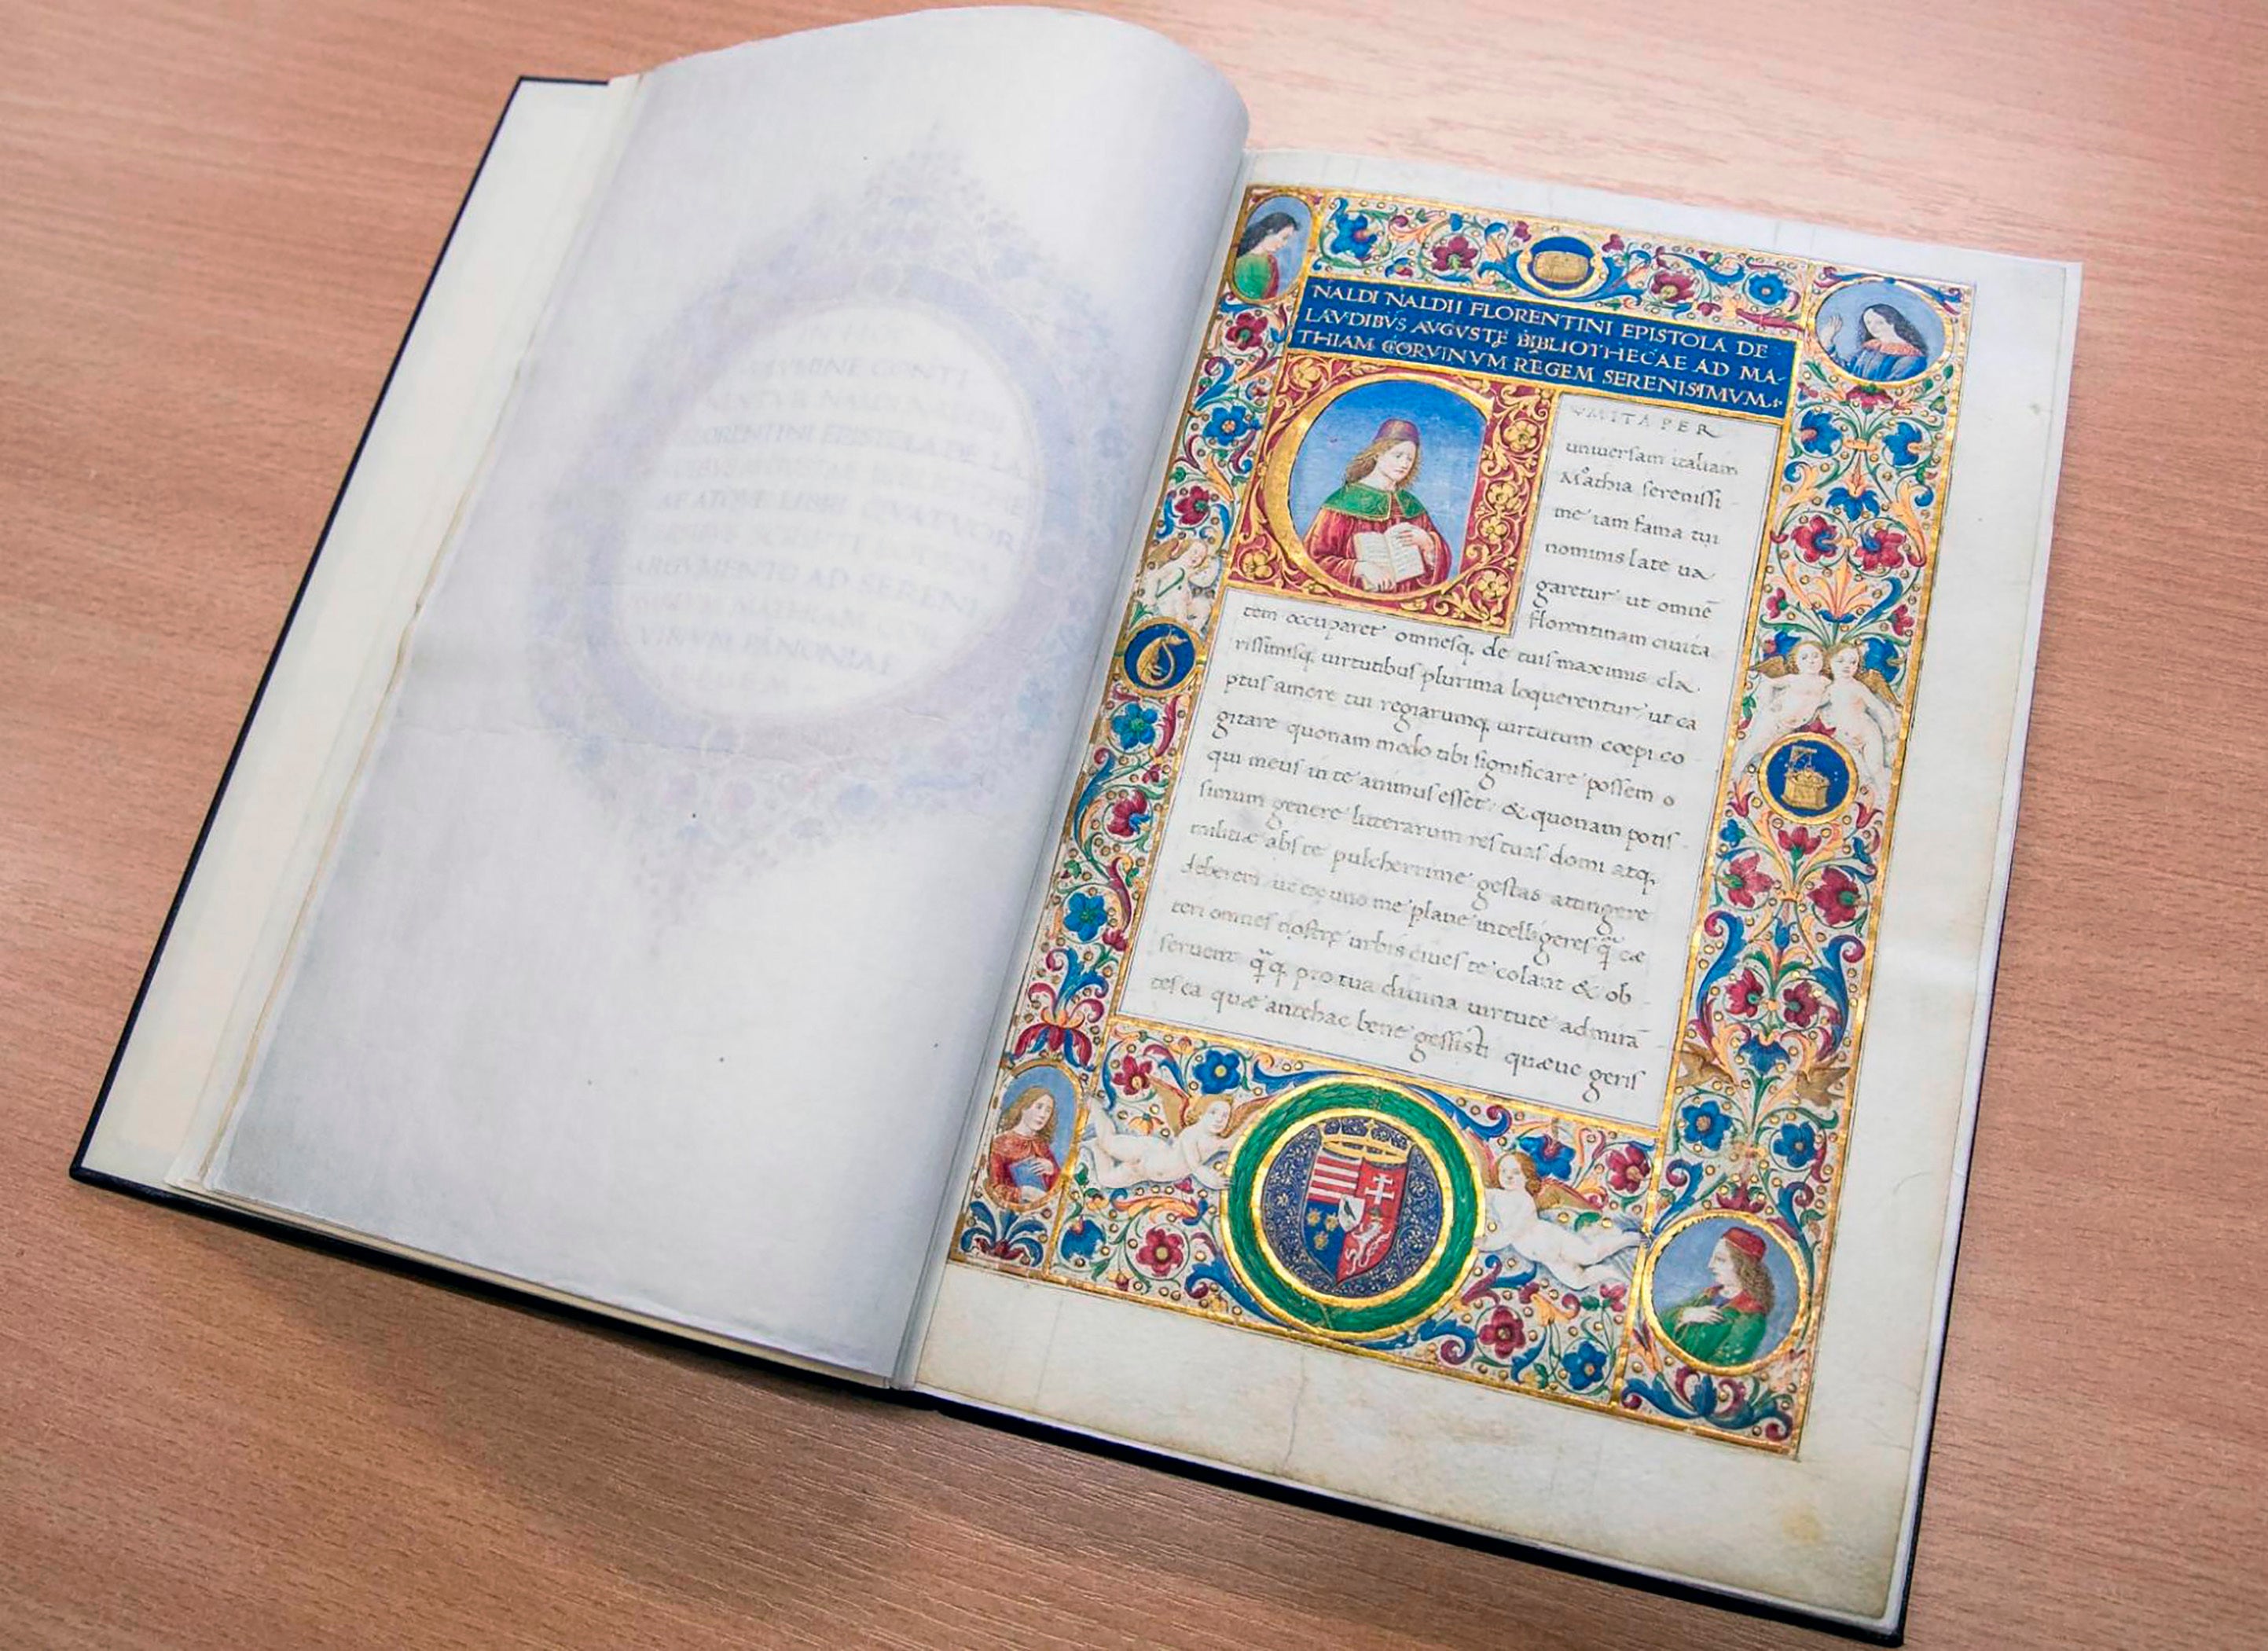 CONTI
FLORENTINI EPISTOLA DE LA
ATQVE LIBRI QVATVOR
ARGVMENTO AD SERENI
MATHIAM COR
VINVM PANONIAE
NALDI NALDII FLORENTINI EPISTOLA DE
LAVDIBVS AVGVSTĘ BIBLIOTHECAE AD MA-
THIAM CORVINVM REGEM SERENISIMVM
VM ITA PER
uniuersam italiam
Mathia serenissi
me iam fama tui
nominis late ua
garetur ut omnē
florentinam ciuita
tem occuparet omnesq. de tuis maximis cla
rissimisq. uirtutibus plurima loquerentur, ut ca
ptus amore tui regiarumq. uirtutum coepi co
gitare quonam modo tibi significare possem o
qui meus in te animus esset: & quonam potis
simum genere litterarum res tuas domi atq.
militiæ abs te pulcherrime gestas attingere
deberem ut ex uno me plane intelligeres q̄ cæ
teri omnes nostrę urbis ciues te colant & ob
seruent q̄q. pro tua diuina uirtute admirā
tes ea quæ antehac bene gessisti quæue geris